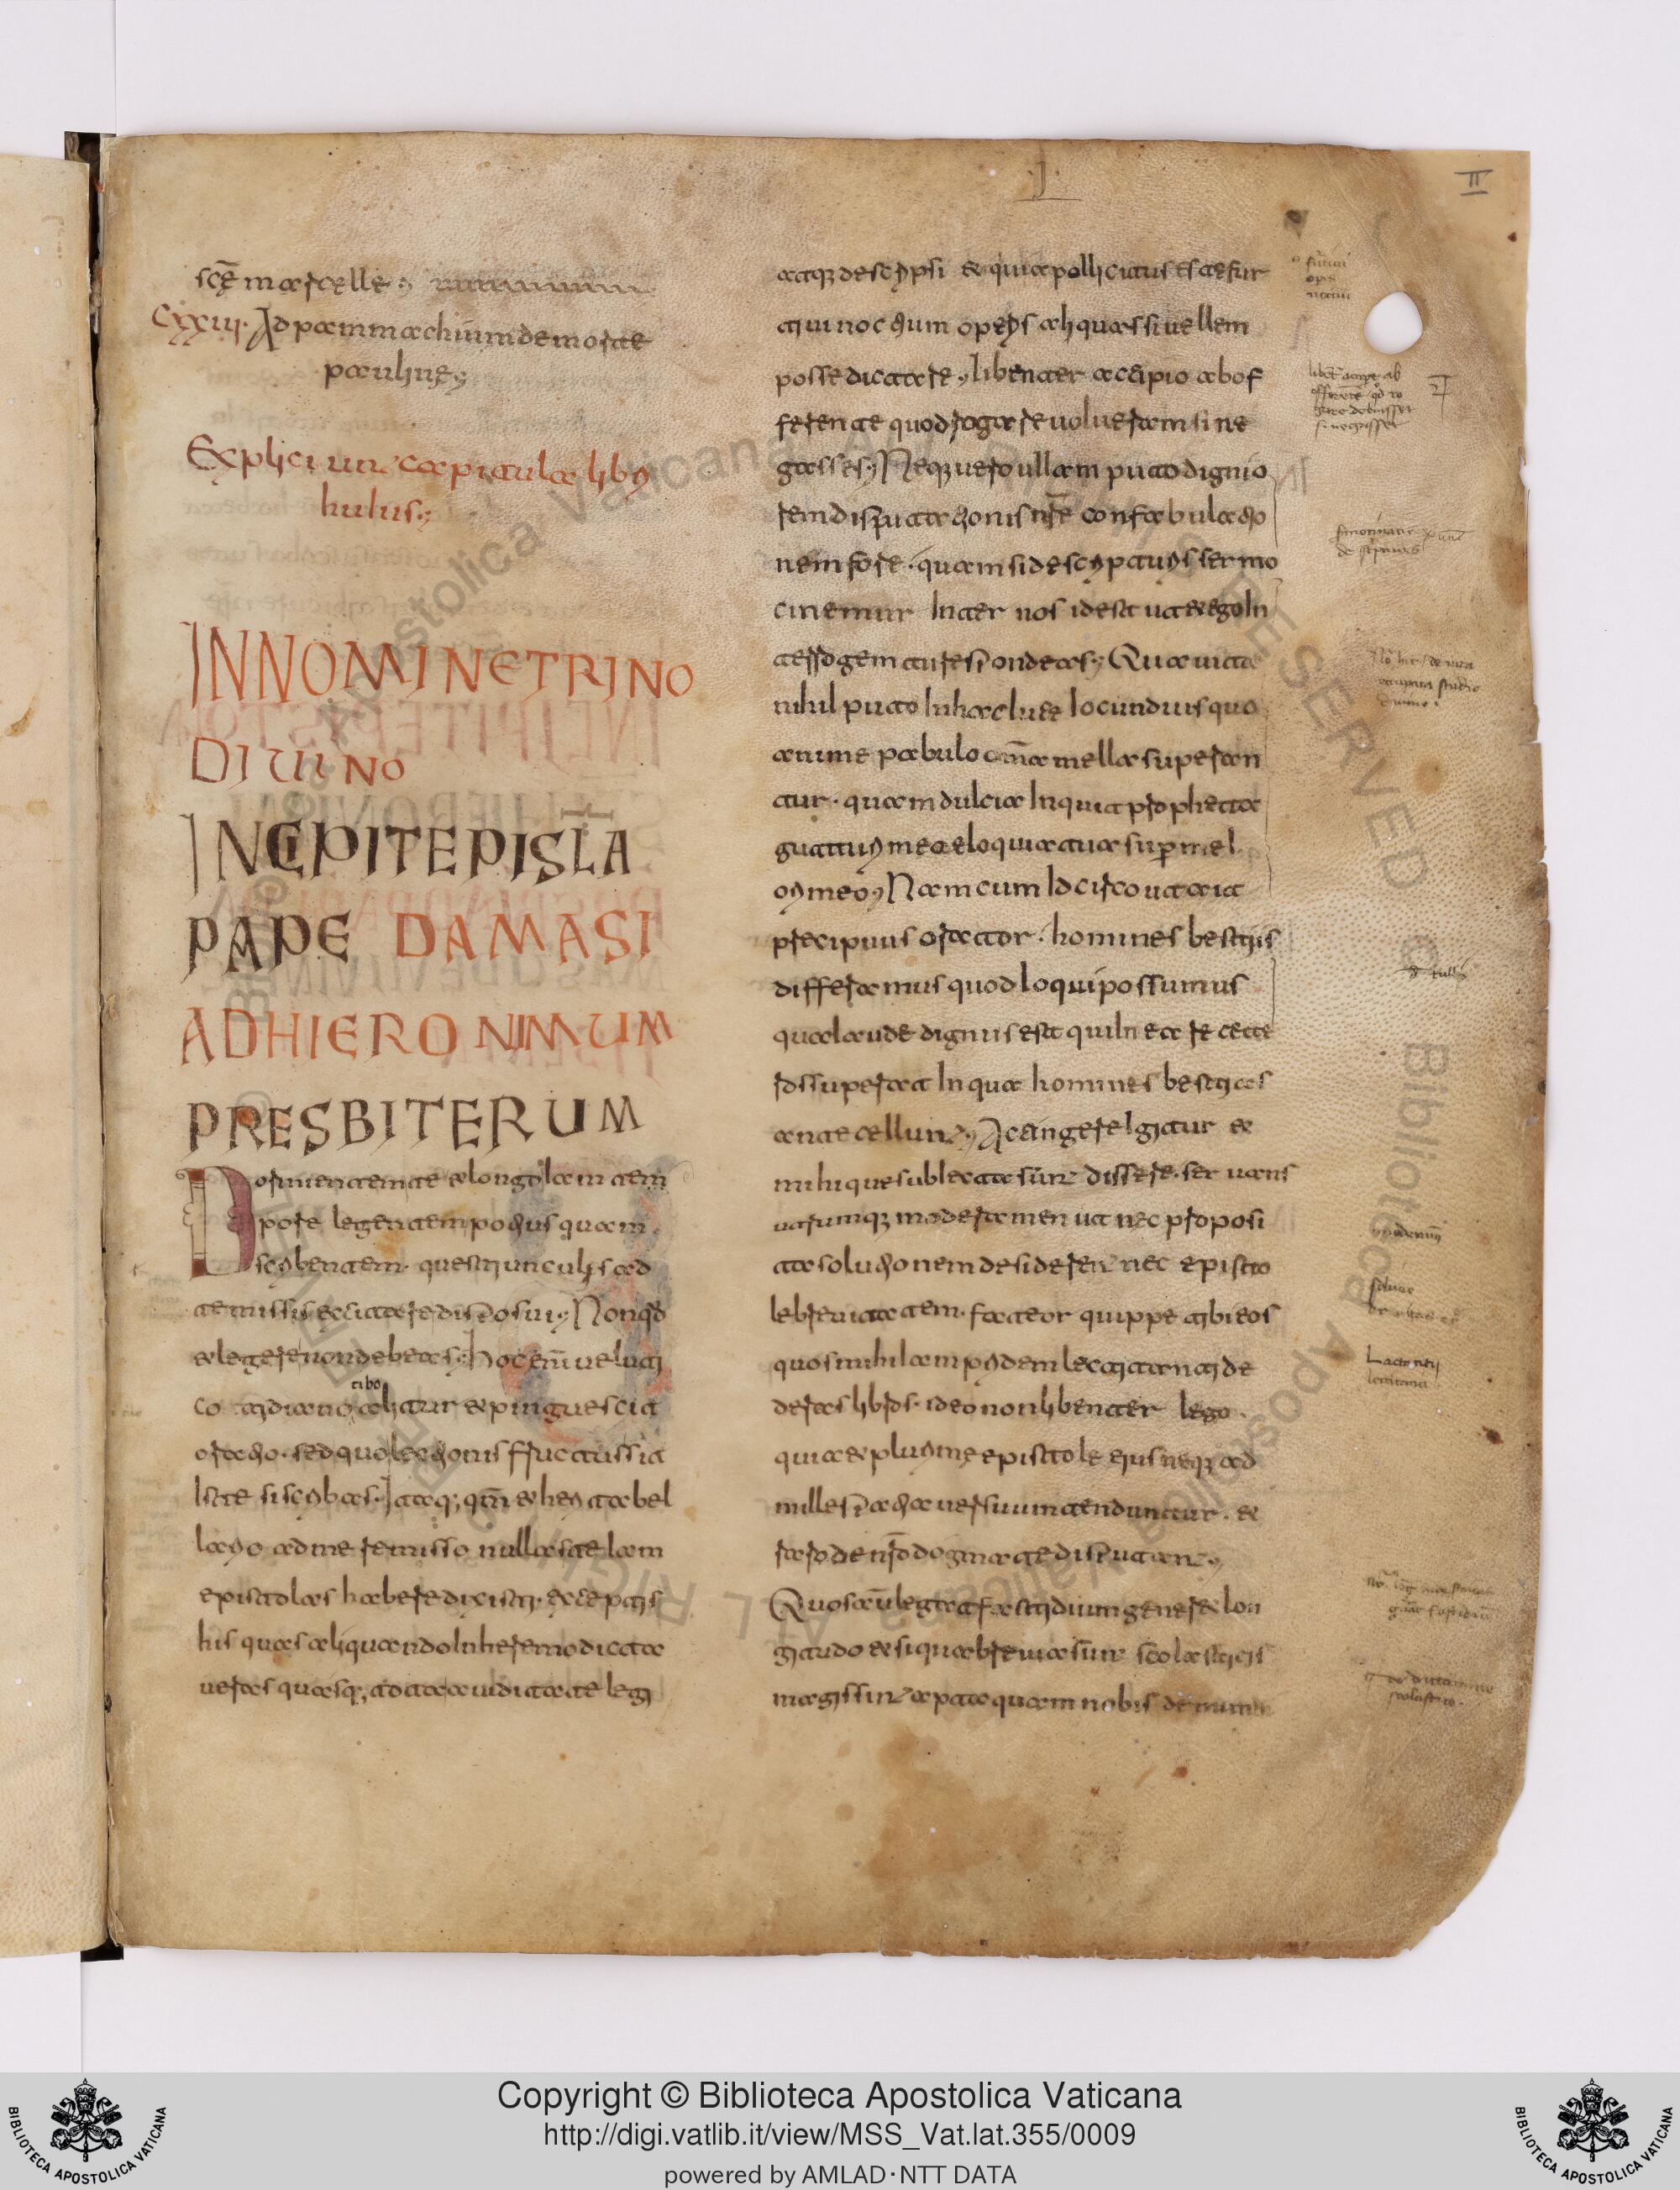 J
II
scē marcelle
CXXIII. Ad pammachium de morte
pauline
Expliciunt capitula libri
huius
IN NOMINE TRINO
DIVINO
INCIPIT EPISLA
PAPE DAMASI
AD HIERONIMUM
PRESBITERUM
Dormientem te & longo iam tem
pore legentem potius quam
scribentem. questiunculis ad
te missis excitare disposui. Non qđ
& legere non debeas. Hoc enī veluti
cibo
cotidiano alitur & pinguescit
oratio. sed quo lectionis fructus sit
iste si scribas. Itaq; qm̄ & heri tabel
lario ad me remisso nullas te iam
epistolas habere dixisti. exceptis
his quas aliquando in heremo dictata
veras quasq; tota aviditate legi
atq; descripsi & quia pollicitus es te fur
tivis noctium operis aliquas si vellem
posse dictare. libenter accipio ab of
ferente quod rogare volueram si ne
gasses. Neq; vero ullam puto dignio
rem disputationis nr̄e confabulatio
nem fore. quam si de scripturis sermo
cinemur inter nos id est ut & ego in
terrogem tu respondeas. Qua vita
nihil puto in hac luce iocundius quo
anime pabulo om̄a mella superan
tur. quam dulcia inquit propheta
gutturi meo eloquia tua super mel
ori meo. Nam cum idcirco ut ait
precipuus orator. homines bestiis
differamus quod loqui possumus
qua laude dignus est qui in ea re cete
ros superat in qua homines bestias
antecellunt. Accingere igitur &
mihi que subiecta sunt dissere. servans
utrumq; moderamen ut nec proposi
ta solutionem desiderent nec episto
le brevitatem. fateor quippe tibi eos
quos mihi iam pridem lectitanti de
deras libros. ideo non libenter lego.
quia & plurime epistole eius usq; ad
mille spatia versuum tenduntur. &
raro de nr̄o dogmate disputant.
Quo sit ut & legenti fastidium generet lon
gitudo & si qua brevia sunt scolasticis
magis sint apta quam nobis de
Copyright © Biblioteca Apostolica Vaticana
http://digi.vatlib.it/view/MSS_Vat.lat.355/0009
powered by AMLAD·NTT DATA
BIBLIOTECA APOSTOLICA VATICANA
BIBLIOTECA APOSTOLICA VATICANA